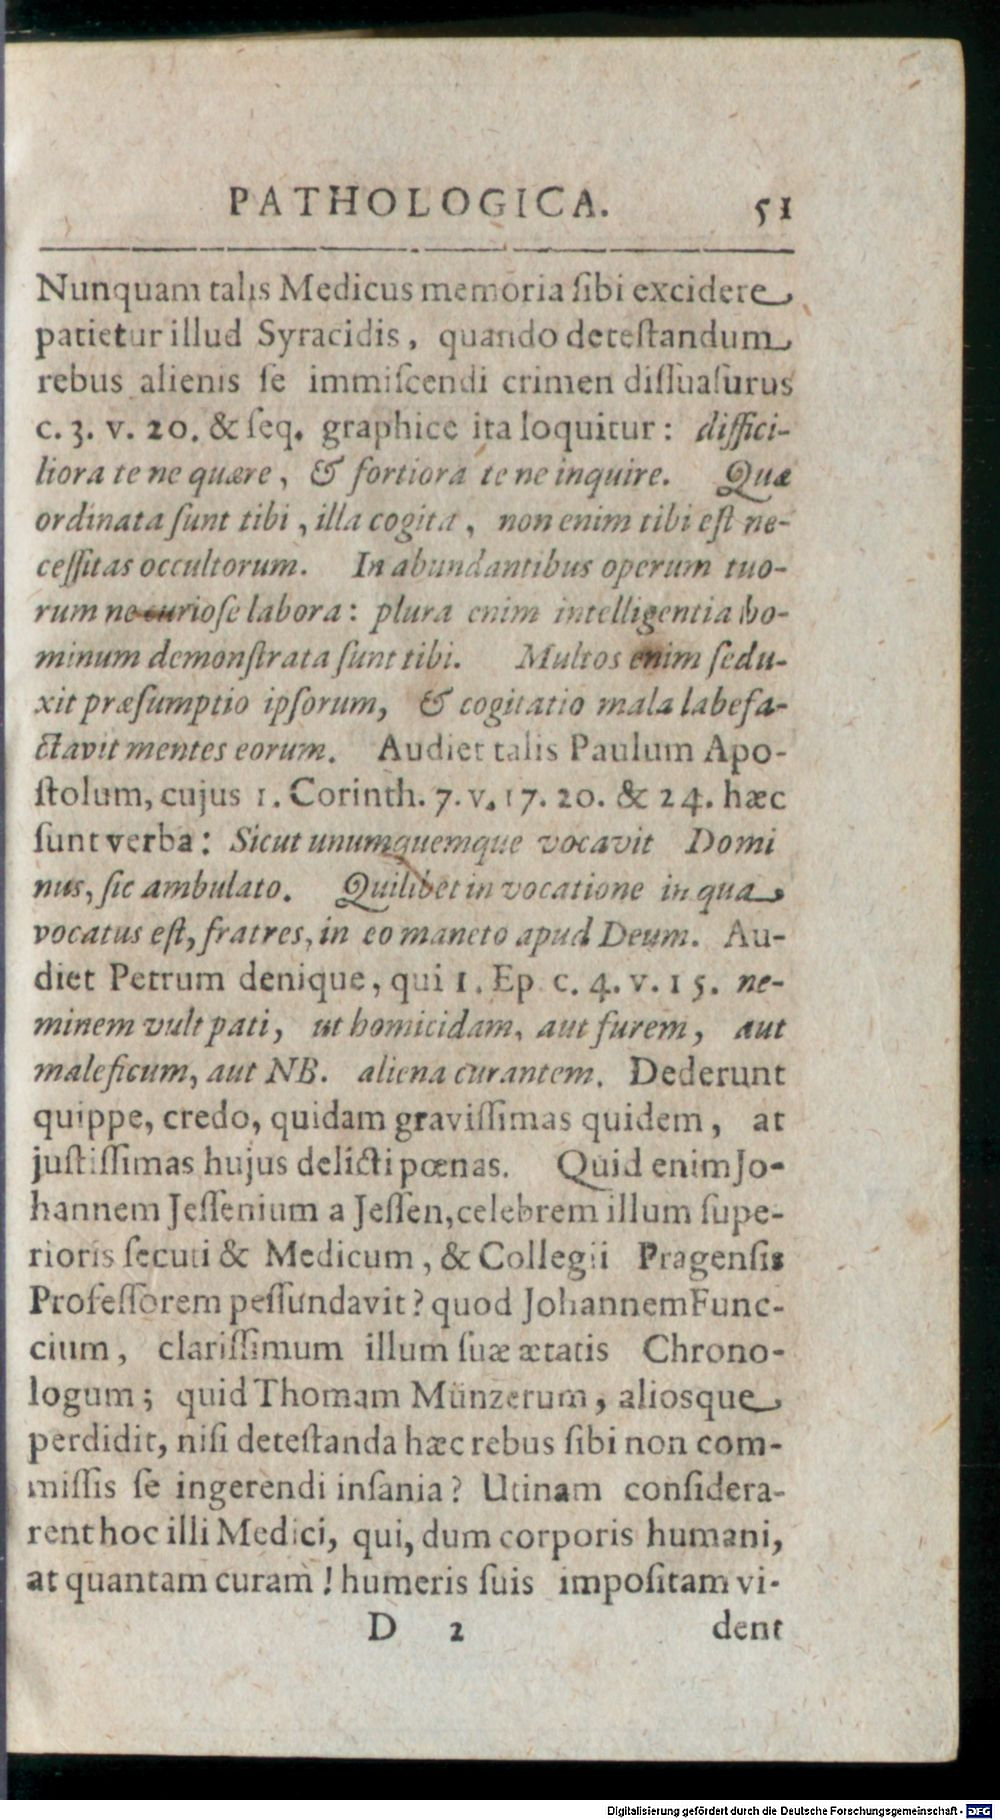 PATHOLOGICA. 51
Nunquam talis Medicus memoria ſibi excidere
patietur illud Syracidis, quando deteſtandum
rebus alienis ſe immiſcendi crimen diſſuaſurus
c. 3. v. 20. & ſeq. graphice ita loquitur: diffici-
liora te ne quære, & fortiora te ne inquire. Quæ
ordinata ſunt tibi, illa cogita, non enim tibi eſt ne-
ceſſitas occultorum. In abundantibus operum tuo-
rum ne curioſe labora: plura enim intelligentia ho-
minum demonſtrata ſunt tibi. Multos enim ſedu-
xit præſumptio ipſorum, & cogitatio mala labefa-
ctavit mentes eorum. Audiet talis Paulum Apo-
ſtolum, cujus 1. Corinth. 7. v. 17. 20. & 24. hæc
ſunt verba: Sicut unumquemque vocavit Domi
nus, ſic ambulato. Quilibet in vocatione in qua
vocatus eſt, fratres, in eo maneto apud Deum. Au-
diet Petrum denique, qui 1. Ep c. 4. v. 15. ne-
minem vult pati, ut homicidam, aut furem, aut
maleficum, aut NB. aliena curantem. Dederunt
quippe, credo, quidam graviſſimas quidem, at
juſtiſſimas hujus delicti pœnas. Quid enim Jo-
hannem Jeſſenium a Jeſſen, celebrem illum ſupe-
rioris ſecuti & Medicum, & Collegii Pragenſis
Profeſſorem peſſundavit? quod Johannem Func-
cium, clariſſimum illum ſuæ ætatis Chrono-
logum; quid Thomam Münzerum, aliosque
perdidit, niſi deteſtanda hæc rebus ſibi non com-
miſſis ſe ingerendi inſania? Utinam conſidera-
rent hoc illi Medici, qui, dum corporis humani,
at quantam curam! humeris ſuis impoſitam vi-
D 2 dent
Digitalisierung gefördert durch die Deutsche Forschungsgemeinschaft - DFG